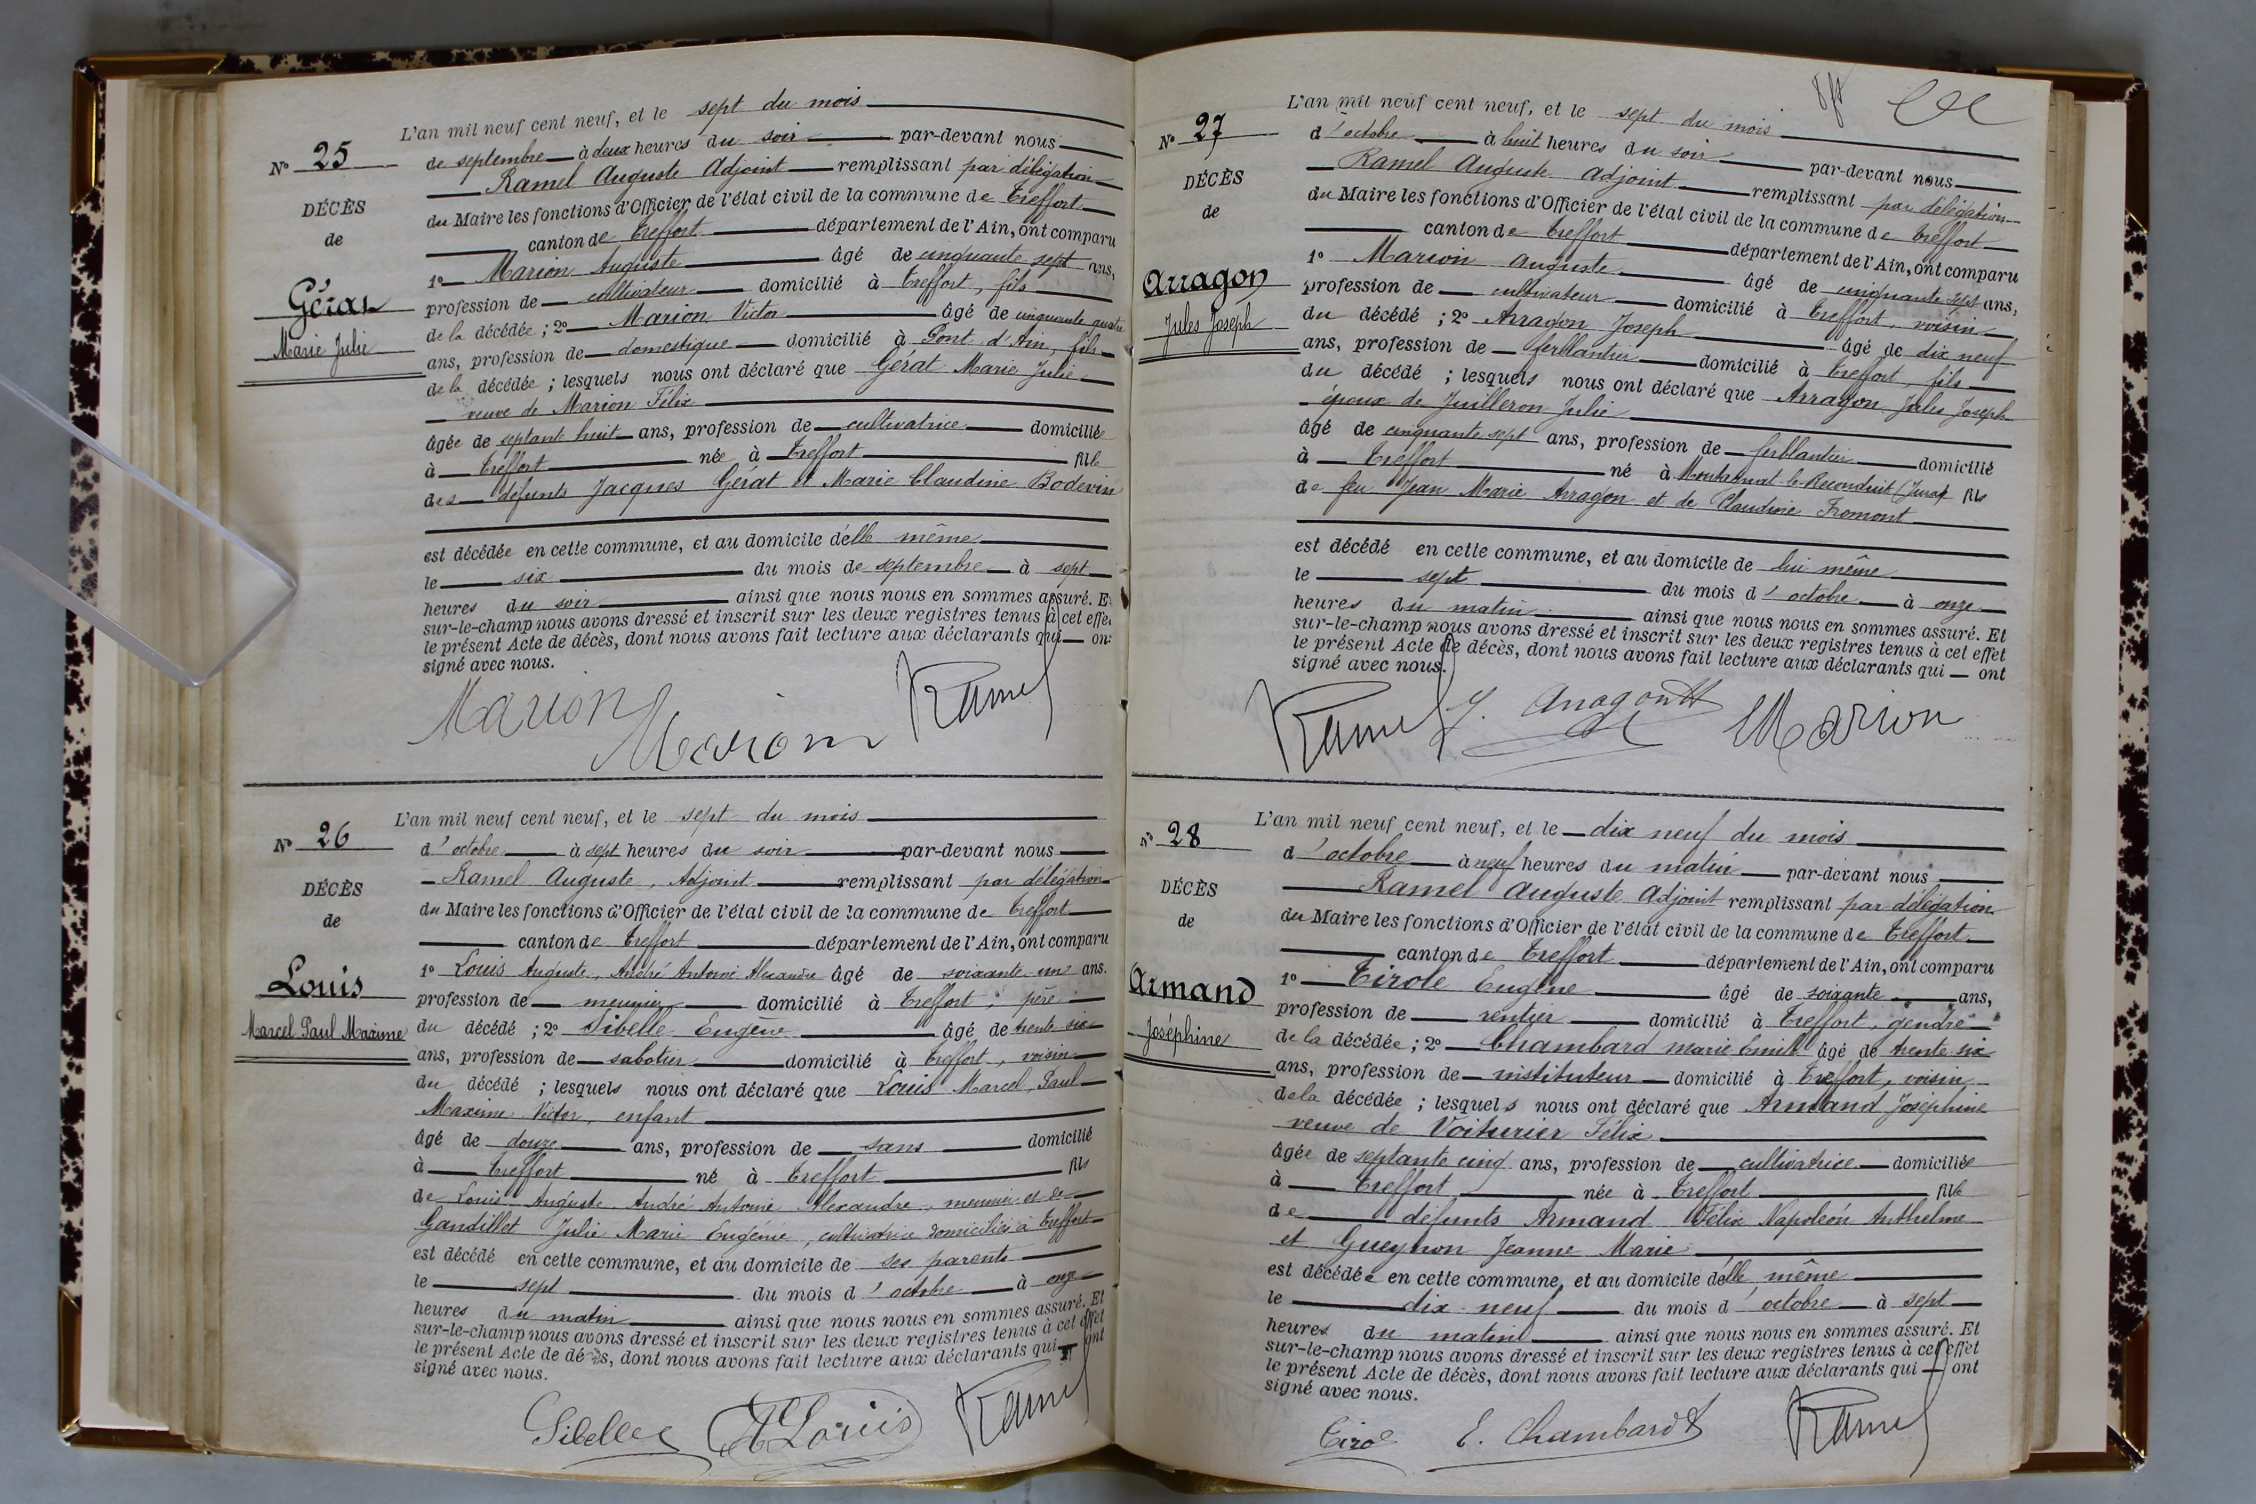 N° 25
DÉCÈS
de
Gérat
Marie Julie
L'an mil neuf cent neuf, et le sept du mois
de septembre à deux heures du soir par-devant nous
Ramel Auguste Adjoint remplissant par délégation
du Maire les fonctions d'Officier de l'état civil de la commune de Treffort
canton de Treffort département de l'Ain, ont comparu
1° Marion Auguste âgé de cinquante sept ans,
profession de cultivateur domicilié à Treffort, fils
de la décédée ; 2° Marion Victor âgé de cinquante quatre
ans, profession de domestique domicilié à Pont d'Ain, fils
de la décédée ; lesquels nous ont déclaré que Gérat Marie Julie
veuve de Marion Félix
âgée de septante huit ans, profession de cultivatrice domiciliée
à Treffort née à Treffort fille
des défunts Jacques Gérat et Marie Claudine Bodevin
est décédée en cette commune, et au domicile d'elle même
le six du mois de septembre à sept
heures du soir ainsi que nous nous en sommes assuré. Et
sur-le-champ nous avons dressé et inscrit sur les deux registres tenus à cet effet
le présent Acte de décès, dont nous avons fait lecture aux déclarants qui ont
signé avec nous.
Marion
Marion
Ramel
N° 26
DÉCÈS
de
Louis
Marcel Paul Maxime
L'an mil neuf cent neuf, et le sept du mois
d'octobre à sept heures du soir par-devant nous
Ramel Auguste, Adjoint remplissant par délégation
du Maire les fonctions d'Officier de l'état civil de la commune de Treffort
canton de Treffort département de l'Ain, ont comparu
1° Louis Auguste, André Antoine Alexandre âgé de soixante un ans.
profession de meunier domicilié à Treffort, père
du décédé ; 2° Sibelle Eugène âgé de trente six
ans, profession de sabotier domicilié à Treffort, voisin
du décédé ; lesquels nous ont déclaré que Louis Marcel Paul
Maxime Victor, enfant
âgé de douze ans, profession de sans domicilié
à Treffort né à Treffort fils
de Louis Auguste André Antoine Alexandre, meunier et de
Gandillet Julie Marie Eugénie, cultivatrice domiciliés à Treffort
est décédé en cette commune, et au domicile de ses parents
le sept du mois d'octobre à onze
heures du matin ainsi que nous nous en sommes assuré. Et
sur-le-champ nous avons dressé et inscrit sur les deux registres tenus à cet effet
le présent Acte de décès, dont nous avons fait lecture aux déclarants qui ont
signé avec nous.
Sibelle
A Louis
Ramel
N° 27
DÉCÈS
de
Arragon
Jules Joseph
L'an mil neuf cent neuf, et le sept du mois
d'octobre à huit heures du soir par-devant nous
Ramel Auguste Adjoint remplissant par délégation
du Maire les fonctions d'Officier de l'état civil de la commune de Treffort
canton de Treffort département de l'Ain, ont comparu
1° Marion Auguste âgé de cinquante sept ans,
profession de cultivateur domicilié à Treffort, voisin
du décédé ; 2° Arragon Joseph âgé de dix neuf
ans, profession de ferblantier domicilié à Treffort, fils
du décédé ; lesquels nous ont déclaré que Arragon Jules Joseph
époux de Juilleron Julie
âgé de cinquante sept ans, profession de ferblantier domicilié
à Treffort né à (Jura) fils
de feu Jean Marie Arragon et de Claudine Fromont
est décédé en cette commune, et au domicile de lui même
le sept du mois d'octobre à onze
heures du matin ainsi que nous nous en sommes assuré. Et
sur-le-champ nous avons dressé et inscrit sur les deux registres tenus à cet effet
le présent Acte de décès, dont nous avons fait lecture aux déclarants qui ont
signé avec nous.
Ramel
J. Arragon
Marion
N° 28
DÉCÈS
de
Armand
Joséphine
L'an mil neuf cent neuf, et le dix neuf du mois
d'octobre à neuf heures du matin par-devant nous
Ramel Auguste Adjoint remplissant par délégation
du Maire les fonctions d'Officier de l'état civil de la commune de Treffort
canton de Treffort département de l'Ain, ont comparu
1° Tirole Eugène âgé de soixante ans,
profession de rentier domicilié à Treffort, gendre
de la décédée ; 2° Chambard Marie Emile âgé de trente six
ans, profession de instituteur domicilié à Treffort, voisin
de la décédée ; lesquels nous ont déclaré que Armand Joséphine
veuve de Voiturier Félix
âgée de septante cinq ans, profession de cultivatrice domiciliée
à Treffort née à Treffort fille
de défunts Armand Félix Napoléon Anthelme
et Gueynon Jeanne Marie
est décédée en cette commune, et au domicile d'elle même
le dix neuf du mois d'octobre à sept
heures du matin ainsi que nous nous en sommes assuré. Et
sur-le-champ nous avons dressé et inscrit sur les deux registres tenus à cet effet
le présent Acte de décès, dont nous avons fait lecture aux déclarants qui ont
signé avec nous.
Tirol
E. Chambard
Ramel